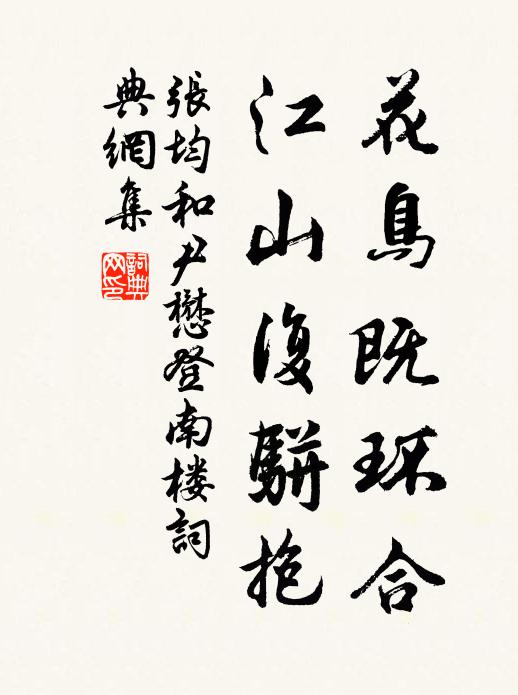 花鳥既环合
江山復駢抱
張均和尹懋登南楼詞
典網集
詞典
网印